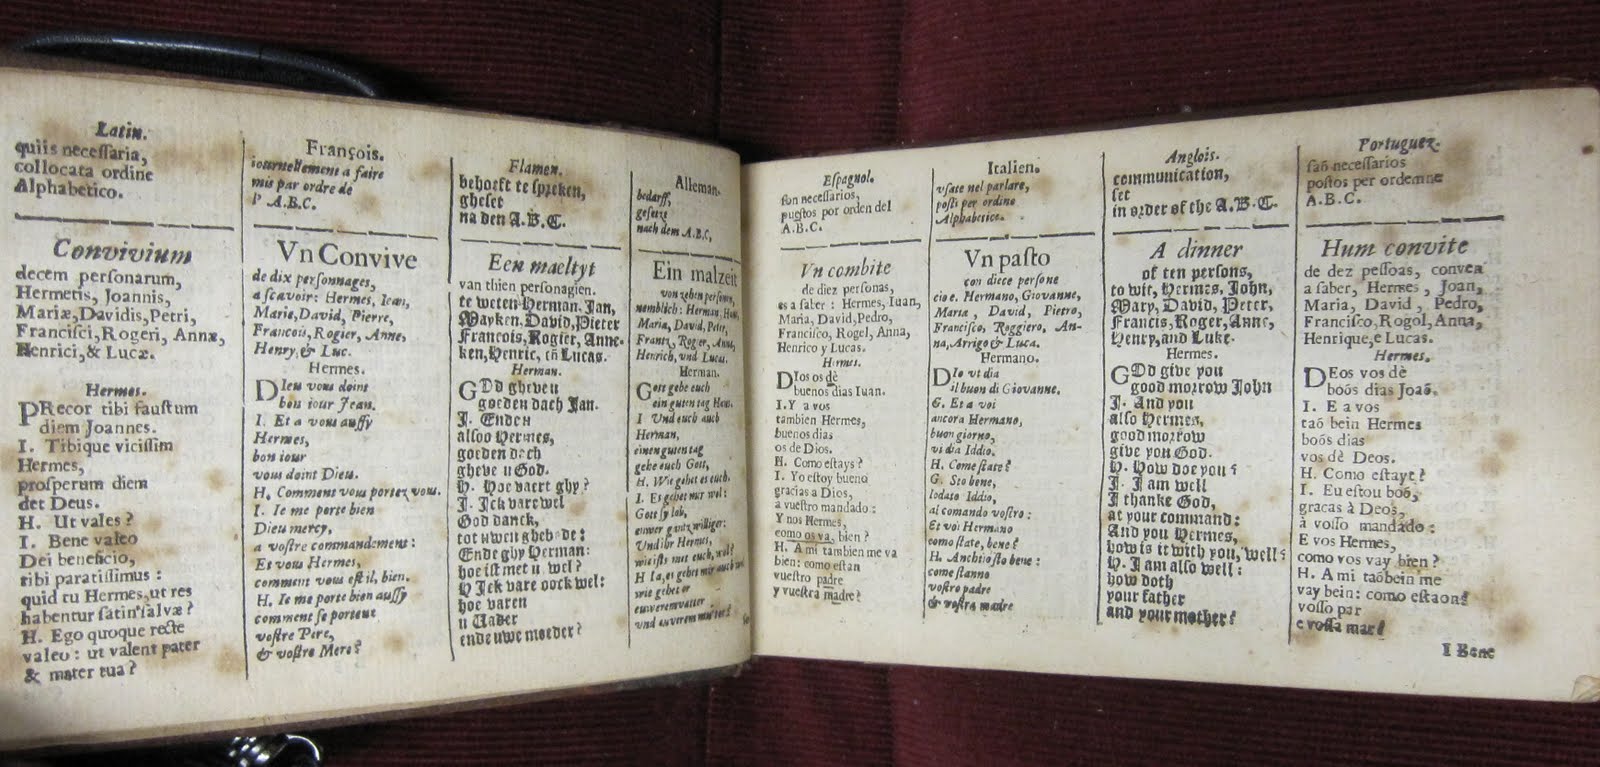 Latin.
quiis necessaria,
collocata ordine
Alphabetico.
Convivium
decem personarum,
Hermetis, Joannis,
Mariæ, Davidis, Petri,
Francisci, Rogeri, Annæ,
Henrici, & Lucæ.
Hermes.
PRecor tibi faustum
diem Joannes.
I. Tibique vicissim
Hermes,
prosperum diem
det Deus.
H. Ut vales?
I. Bene valeo
Dei beneficio,
tibi paratissimus:
quid tu Hermes, ut res
habentur satin' salvæ?
H. Ego quoque recte
valeo: ut valent pater
& mater tua?
François.
iournellement a faire
mis par ordre de
l' A.B.C.
Vn Convive
de dix personnages,
a scavoir: Hermes, Iean,
Marie, David, Pierre,
Francois, Rogier, Anne,
Henry, & Luc.
Hermes.
DIeu vous doint
bon iour Jean.
I. Et a vous aussy
Hermes,
bon iour
vous doint Dieu.
H. Comment vous portez vous.
I. Ie me porte bien
Dieu mercy,
a vostre commandement:
Et vous Hermes,
comment vous est il, bien.
H. Ie me porte bien aussy
comment se portent
vostre Pere,
& vostre Mere?
Flamen.
behoeft te spreken,
gheset
na den A.B.C.
Een maeltyt
van thien personagien.
te weten Herman. Jan,
Mayken, David, Pieter
Francois, Rogier, Anne-
ken, Henric, eñ Lucas.
Herman.
GOd gheven
goeden dach Jan.
J. Ende u
alsoo Hermes,
goeden dach
gheve u God.
H. Hoe vaert ghy?
J. Ick vare wel
God danck,
tot uwen ghebode:
Ende ghy Herman:
hoe ist met u wel?
H Ick vare oock wel:
hoe varen
u Vader
ende uwe moeder?
Alleman.
bedarff,
gesetzt
nach dem A.B.C,
Ein malzeit
von zehen personen,
nemblich: Herman, Hans,
Maria, David, Peter,
Frantz, Rogier, Anna,
Henrich, und Lucas.
Herman.
Gott gebe euch
ein guten tag Hans.
I Und euch auch
Herman,
einen guten tag
gebe euch Gott,
H. Wie gehet es euch.
I. Es gehet mir wel:
Gott sy lob,
euwer gutz williger:
Und ihr Hermes,
wie ists met euch, wol?
H Ia, es gehet mir auch wol
wie gehet er
euwerem vatter
und euwerem mutter?
Espagnol.
son necessarios,
puestos por orden del
A.B.C.
Vn combite
de diez personas,
es a saber: Hermes, Iuan,
Maria, David, Pedro,
Francisco, Rogel, Anna,
Henrico y Lucas.
Hermes.
DIos os dè
buenos dias Iuan.
I. Y a vos
tambien Hermes,
buenos dias
os de Dios.
H. Como estays?
I. Yo estoy bueno
gracias a Dios,
a vuestro mandado:
Y nos Hermes,
como os va, bien?
H. A mi tambien me va
bien: como estan
vuestro padre
y vuestra madre?
Italien.
usate nel parlare,
posti per ordine
Alphabetico.
Vn pasto
con diece persone
cio e. Hermano, Giovanne,
Maria, David, Pietro,
Francisco, Roggiero, An-
na, Arrigo & Luca.
Hermano.
DIo vi dia
il buon di Giovanne.
G. Et a voi
ancora Hermano,
buon giorno,
vi dia Iddio.
H. Come state?
G. Sto bene,
lodato Iddio,
al comando vostro:
Et voi Hermano
come state, bene?
H. Anchi osto bene:
come stanno
vostro padre
& vostra madre
Anglois.
communication,
set
in order of the A.B.C.
A dinner
of ten persons,
to wit, Hermes, John,
Mary, David, Peter,
Francis, Roger, Anne,
Henry, and Luke.
Hermes.
GOd give you
good morrow John
J. And you
also Hermes,
good morrow
give you God.
H. How doe you?
J. J am well
J thanke God,
at your command:
And you Hermes,
how is it with you, well?
H. J am also well:
how doth
your father
and your mother?
Portuguez.
saõ necessarios
postos per ordemne
A.B.C.
Hum convite
de dez pessoas, convea
a saber, Hermes, Joan,
Maria, David, Pedro,
Francisco, Rogol, Anna,
Henrique, e Lucas.
Hermes.
DEos vos dè
boõs dias Joaõ.
I. E a vos
taõ bein Hermes
boõs dias
vos dè Deos.
H. Como estaye?
I. Eu estou boõ,
gracas à Deos,
à vosso mandado:
E vos Hermes,
como vos vay bien?
H. A mi taõbein me
vay bein: como estaon?
vosso par
e vossa mar?
I Bene